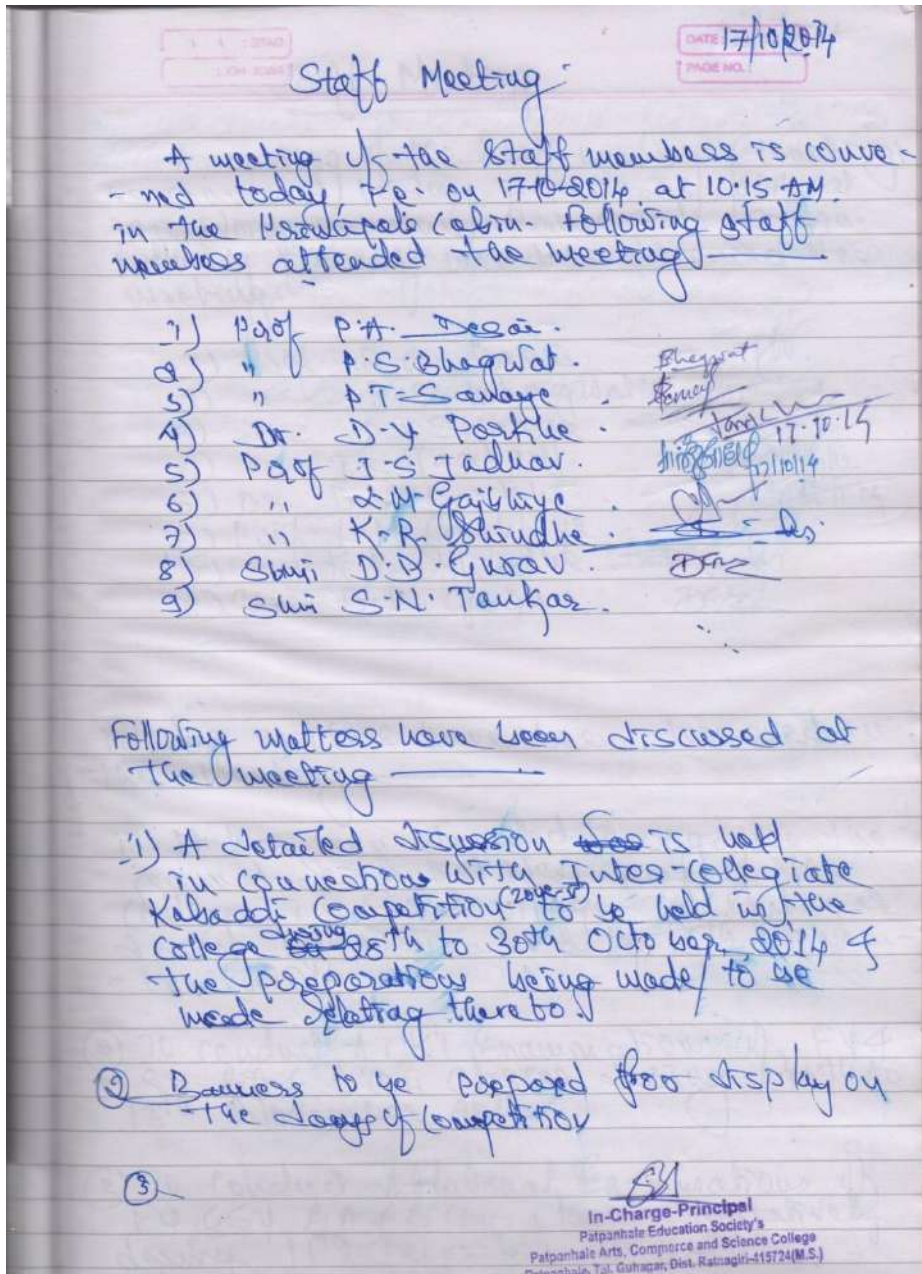 DATE: 17/10/2014
PAGE NO.:
Staff Meeting
A meeting of the Staff members is conve-
-ned today, i.e. on 17-10-2014 at 10.15 AM
in the Principal's Cabin. Following staff
members attended the meeting
1) Prof P.A. Desai.
2) " P.S. Bhagwat. Bhagwat
3) " P.T.
4) Dr. D.Y. 17.10.14
5) Prof J.S. Jadhav. 17/10/14
6) " Gajbhiye.
7) " K.R. Shindhe.
8) Shri D.D. Gurav.
9) Shri S.N.
Following matters have been discussed at
the meeting
1) A detailed discussion is held
in connection with Inter collegiate
Kabaddi Competition to be held in the
College during 28th to 30th October, 2014 &
the preparations being made / to be
made relating thereto.
② Banners to be prepared for display on
the days of competition
③
In-Charge-Principal
Patpanhale Education Society's
Patpanhale Arts, Commerce and Science College
Patpanhale, Tal. Guhagar, Dist. Ratnagiri-415724(M.S.)